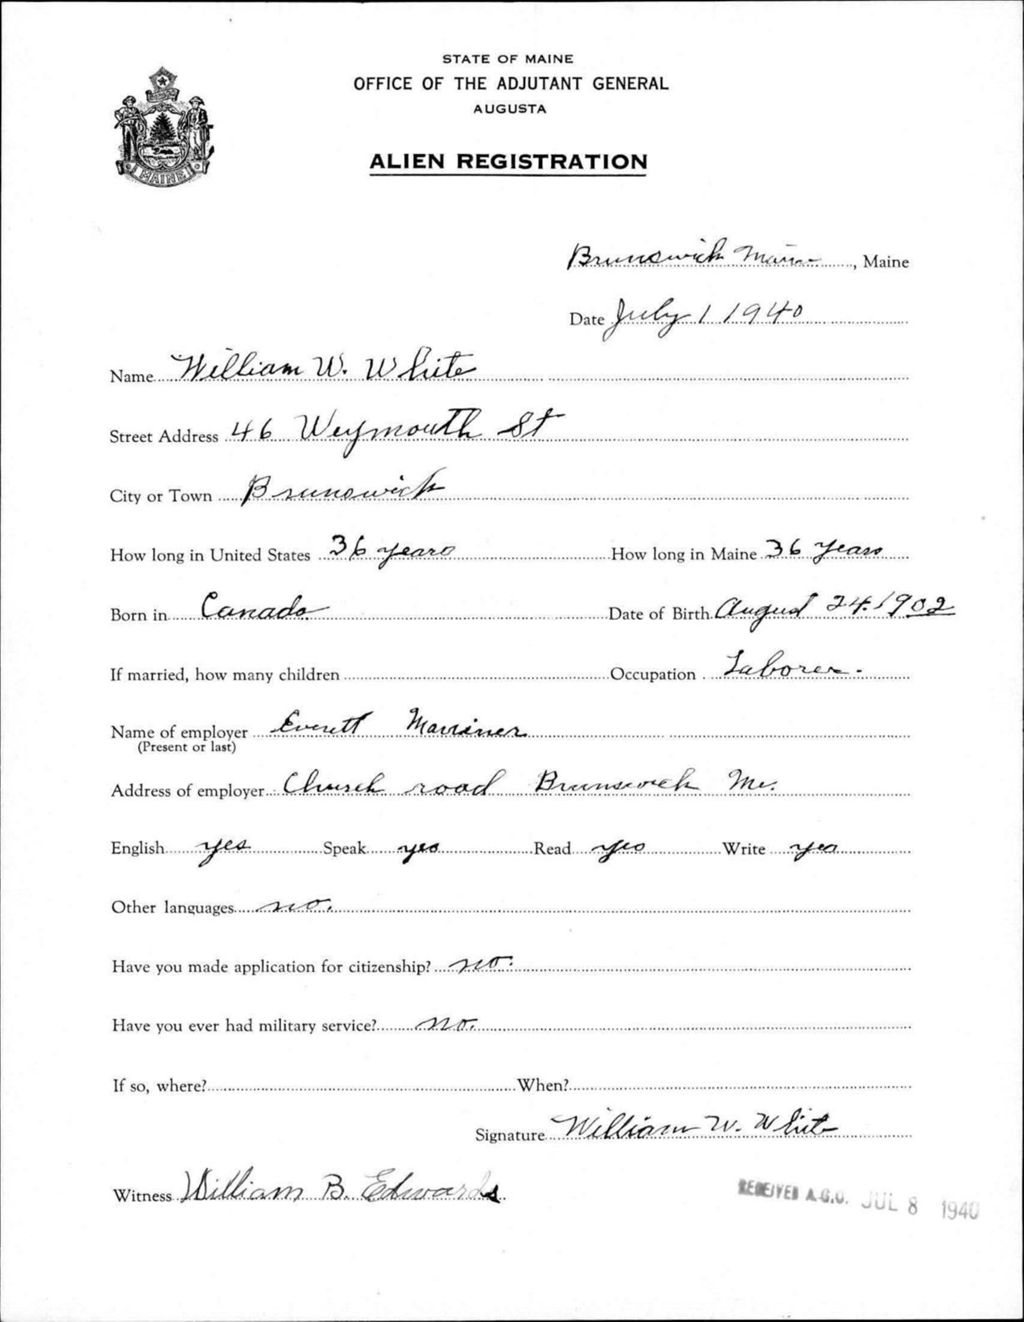 STATE OF MAINE
OFFICE OF THE ADJUTANT GENERAL
AUGUSTA
ALIEN REGISTRATION
MAINE
Brunswick Maine, Maine
Date July 1 1940
Name William W. White
Street Address 46 Weymouth St
City or Town Brunswick
How long in United States 36 years How long in Maine 36 Years
Born in Canada Date of Birth August 24. 1902
If married, how many children Occupation Laborer.
Name of employer Everett Marriner
(Present or last)
Address of employer Church road Brunswick Me.
English yes Speak yes Read yes Write yes
Other languages no.
Have you made application for citizenship? no.
Have you ever had military service? no.
If so, where? When?
Signature William W. White
Witness William B. Edwards
RECEIVED A.G.O. JUL 8 1940